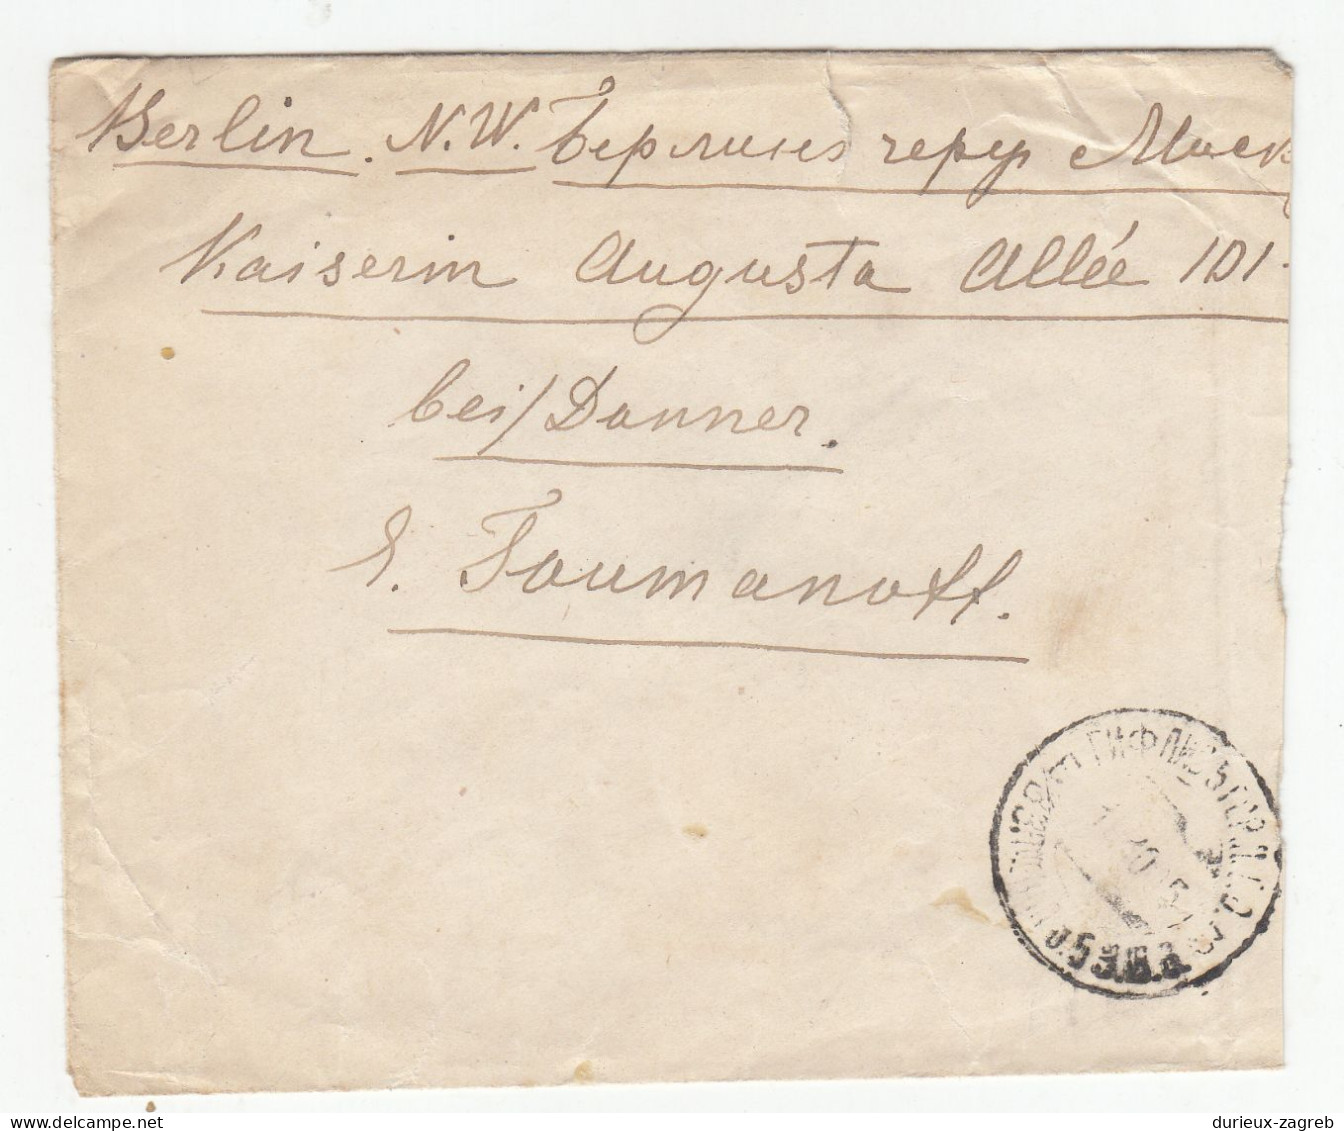 Berlin. N.W. Берлинъ черезъ Моск
Kaiserin Augusta Allée 101.
bei/Donner.
E. Toumanoff.
ТИФЛИСЪ
durieux-zagreb